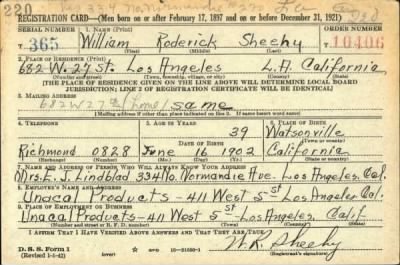 220
REGISTRATION CARD—(Men born on or after February 17, 1897 and on or before December 31, 1921)
SERIAL NUMBER 1. NAME (Print) ORDER NUMBER
T 365 William Roderick Sheehy T 10406
(First) (Middle) (Last)
2. PLACE OF RESIDENCE (Print)
682 W. 27 St. Los Angeles L.A. California
(Number and street) (Town, township, village, or city) (County) (State)
[THE PLACE OF RESIDENCE GIVEN ON THE LINE ABOVE WILL DETERMINE LOCAL BOARD
JURISDICTION; LINE 2 OF REGISTRATION CERTIFICATE WILL BE IDENTICAL]
3. MAILING ADDRESS
682 W 27th (home) same
[Mailing address if other than place indicated on line 2. If same insert word same]
4. TELEPHONE 5. AGE IN YEARS 6. PLACE OF BIRTH
39 Watsonville
DATE OF BIRTH (Town or county)
Richmond 0828 June 16 1902 California
(Exchange) (Number) (Mo.) (Day) (Yr.) (State or country)
7. NAME AND ADDRESS OF PERSON WHO WILL ALWAYS KNOW YOUR ADDRESS
Mrs. E. J. Lindblad 334 No. Normandie Ave. Los Angeles. Cal.
8. EMPLOYER'S NAME AND ADDRESS
Unacal Products - 411 West 5 st Los Angeles Cal.
9. PLACE OF EMPLOYMENT OR BUSINESS
Unacal Products - 411 West 5 st - Los Angeles. Calif
(Number and street or R. F. D. number) (Town) (County) (State)
I AFFIRM THAT I HAVE VERIFIED ABOVE ANSWERS AND THAT THEY ARE TRUE.
D. S. S. Form 1
(Revised 1-1-42) (over) 16-21630-1 W. R. Sheehy
(Registrant's signature)